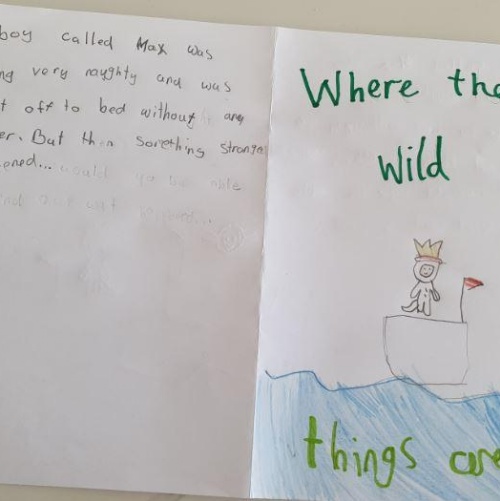 boy called Max was
ng very naughty and was
t off to bed without any
er. But then something strange
ened... would you be able
out what happened...
Where the
Wild
things are